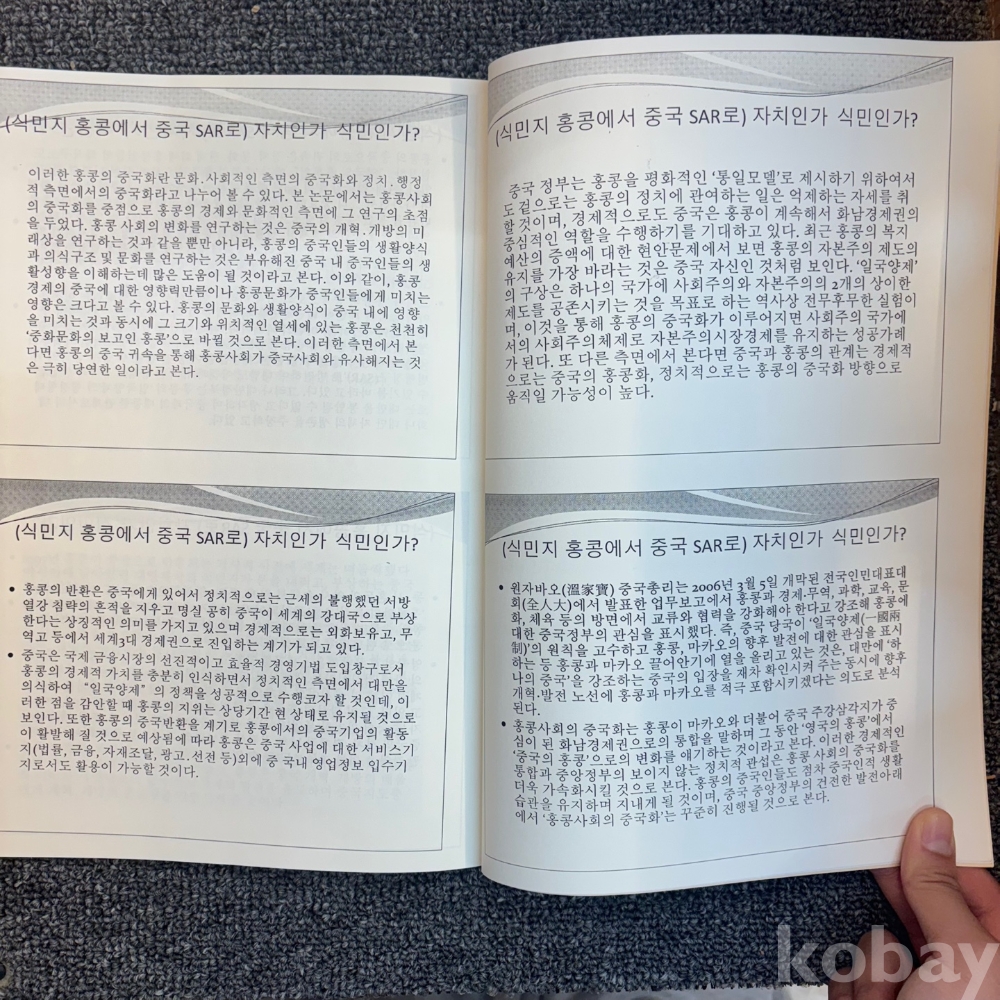 (식민지 홍콩에서 중국 SAR로) 자치인가 식민인가?
이러한 홍콩의 중국화란 문화.사회적인 측면의 중국화와 정치.행정
적 측면에서의 중국화라고 나누어 볼 수 있다. 본 논문에서는 홍콩사회
의 중국화를 중점으로 홍콩의 경제와 문화적인 측면에 그 연구의 초점
을 두었다. 홍콩 사회의 변화를 연구하는 것은 중국의 개혁.개방의 미
래상을 연구하는 것과 같을 뿐만 아니라, 홍콩의 중국인들의 생활양식
과 의식구조 및 문화를 연구하는 것은 부유해진 중국 내 중국인들의 생
활성향을 이해하는데 많은 도움이 될 것이라고 본다. 이와 같이, 홍콩
경제의 중국에 대한 영향력만큼이나 홍콩문화가 중국인들에게 미치는
영향은 크다고 볼 수 있다. 홍콩의 문화와 생활양식이 중국 내에 영향
을 미치는 것과 동시에 그 크기와 위치적인 열세에 있는 홍콩은 천천히
'중화문화의 보고인 홍콩'으로 바뀔 것으로 본다. 이러한 측면에서 본
다면 홍콩의 중국 귀속을 통해 홍콩사회가 중국사회와 유사해지는 것
은 극히 당연한 일이라고 본다.
(식민지 홍콩에서 중국 SAR로) 자치인가 식민인가?
• 홍콩의 반환은 중국에게 있어서 정치적으로는 근세의 불행했던 서방
열강 침략의 흔적을 지우고 명실 공히 중국이 세계의 강대국으로 부상
한다는 상징적인 의미를 가지고 있으며 경제적으로는 외화보유고, 무
역고 등에서 세계3대 경제권으로 진입하는 계기가 되고 있다.
• 중국은 국제 금융시장의 선진적이고 효율적 경영기법 도입창구로서
홍콩의 경제적 가치를 충분히 인식하면서 정치적인 측면에서 대만을
의식하여 “일국양제”의 정책을 성공적으로 수행코자 할 것인데, 이
러한 점을 감안할 때 홍콩의 지위는 상당기간 현 상태로 유지될 것으로
보인다. 또한 홍콩의 중국반환을 계기로 홍콩에서의 중국기업의 활동
이 활발해 질 것으로 예상됨에 따라 홍콩은 중국 사업에 대한 서비스기
지(법률, 금융, 자재조달, 광고.선전 등)외에 중 국내 영업정보 입수기
지로서도 활용이 가능할 것이다.
(식민지 홍콩에서 중국 SAR로) 자치인가 식민인가?
중국 정부는 홍콩을 평화적인 '통일모델'로 제시하기 위하여서
도 겉으로는 홍콩의 정치에 관여하는 일은 억제하는 자세를 취
할 것이며, 경제적으로도 중국은 홍콩이 계속해서 화남경제권의
중심적인 역할을 수행하기를 기대하고 있다. 최근 홍콩의 복지
예산의 증액에 대한 현안문제에서 보면 홍콩의 자본주의 제도의
유지를 가장 바라는 것은 중국 자신인 것처럼 보인다. '일국양제'
의 구상은 하나의 국가에 사회주의와 자본주의의 2개의 상이한
제도를 공존시키는 것을 목표로 하는 역사상 전무후무한 실험이
며, 이것을 통해 홍콩의 중국화가 이루어지면 사회주의 국가에
서의 사회주의체제로 자본주의시장경제를 유지하는 성공가례
가 된다. 또 다른 측면에서 본다면 중국과 홍콩의 관계는 경제적
으로는 중국의 홍콩화, 정치적으로는 홍콩의 중국화 방향으로
움직일 가능성이 높다.
(식민지 홍콩에서 중국 SAR로) 자치인가 식민인가?
• 원자바오(溫家寶) 중국총리는 2006년 3월 5일 개막된 전국인민대표대
회(全人大)에서 발표한 업무보고에서 홍콩과 경제·무역, 과학, 교육, 문
화, 체육 등의 방면에서 교류와 협력을 강화해야 한다고 강조해 홍콩에
대한 중국정부의 관심을 표시했다. 즉, 중국 당국이 '일국양제(一國兩
制)'의 원칙을 고수하고 홍콩, 마카오의 향후 발전에 대한 관심을 표시
하는 등 홍콩과 마카오 끌어안기에 열을 올리고 있는 것은, 대만에 '하
나의 중국'을 강조하는 중국의 입장을 재차 확인시켜 주는 동시에 향후
개혁·발전 노선에 홍콩과 마카오를 적극 포함시키겠다는 의도로 분석
된다.
• 홍콩사회의 중국화는 홍콩이 마카오와 더불어 중국 주강삼각지가 중
심이 된 화남경제권으로의 통합을 말하며 그 동안 '영국의 홍콩'에서
'중국의 홍콩'으로의 변화를 얘기하는 것이라고 본다. 이러한 경제적인
통합과 중앙정부의 보이지 않는 정치적 관섭은 홍콩 사회의 중국화를
더욱 가속화시킬 것으로 본다. 홍콩의 중국인들도 점차 중국인적 생활
습관을 유지하며 지내게 될 것이며, 중국 중앙정부의 건전한 발전아래
에서 '홍콩사회의 중국화'는 꾸준히 진행될 것으로 본다.
kobay